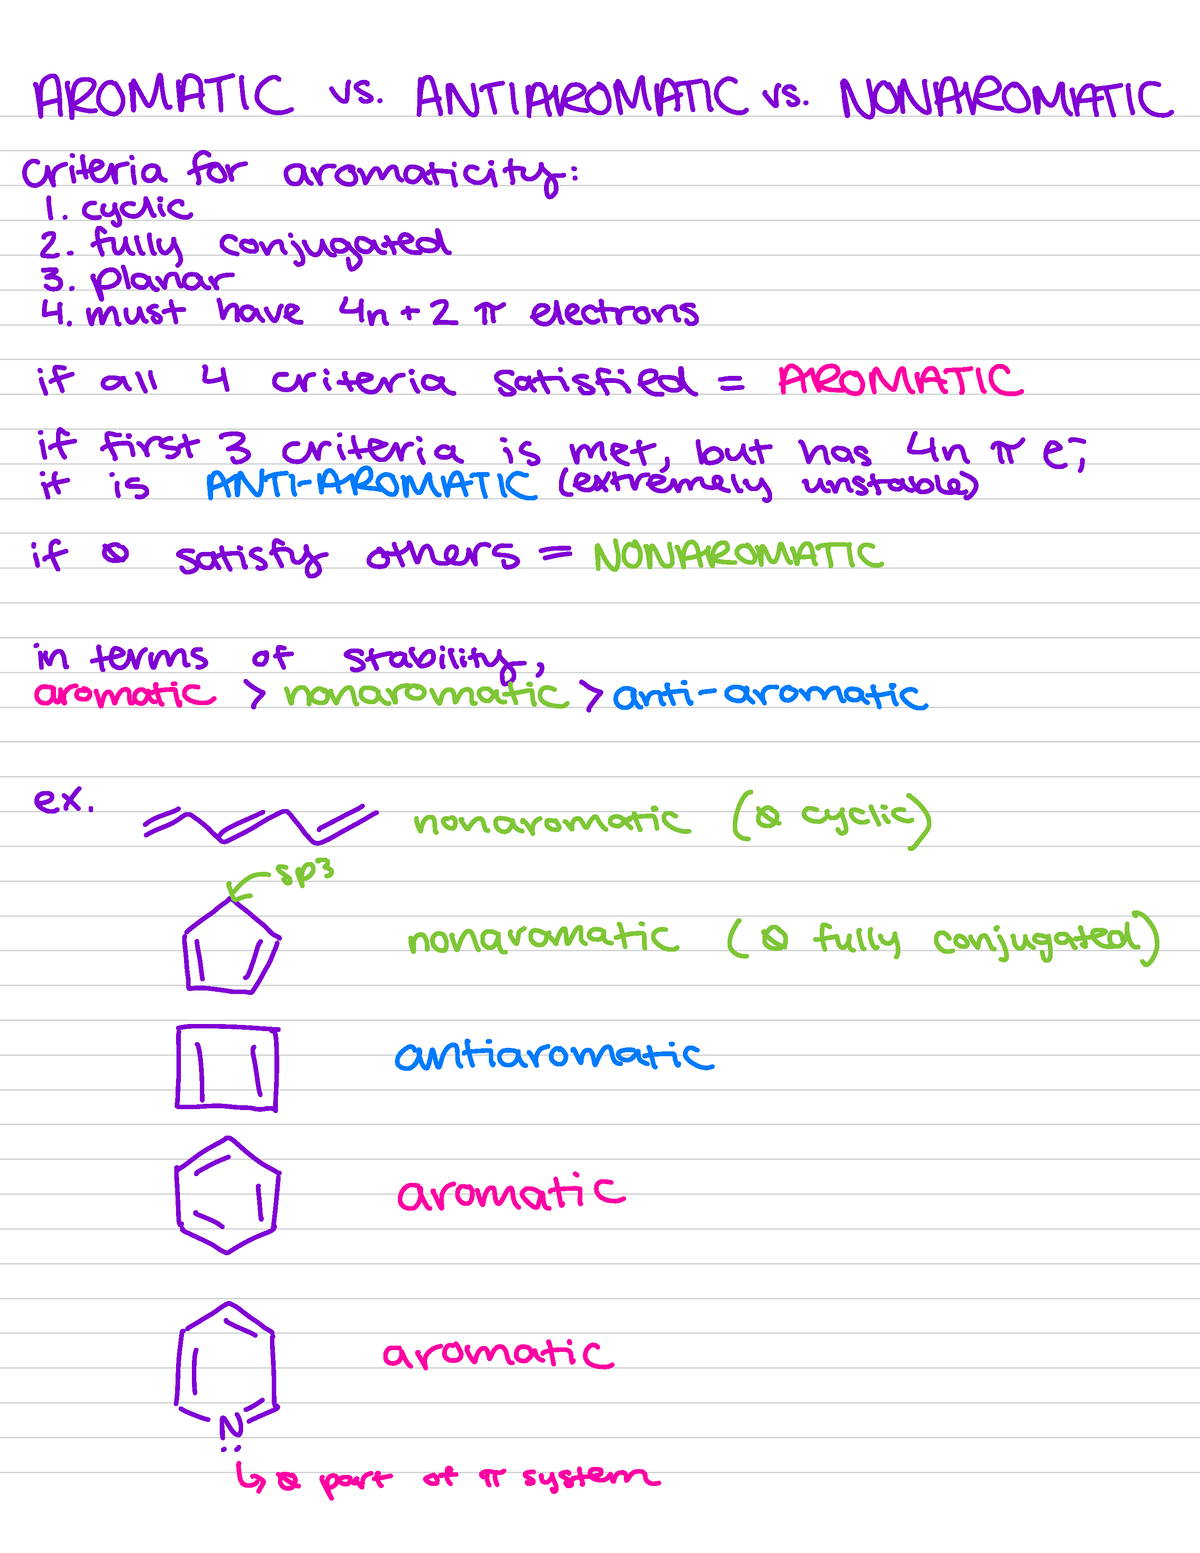 AROMATIC vs. ANTIAROMATIC vs. NONAROMATIC
criteria for aromaticity:
1. cyclic
2. fully conjugated
3. planar
4. must have 4n + 2 π electrons
if all 4 criteria satisfied = AROMATIC
if first 3 criteria is met, but has 4n π e⁻,
it is ANTI-AROMATIC (extremely unstable)
if Ø satisfy others = NONAROMATIC
in terms of stability,
aromatic > nonaromatic > anti-aromatic
ex.
nonaromatic (Ø cyclic)
sp3
nonaromatic (Ø fully conjugated)
antiaromatic
aromatic
aromatic
N
↳ Ø part of π system